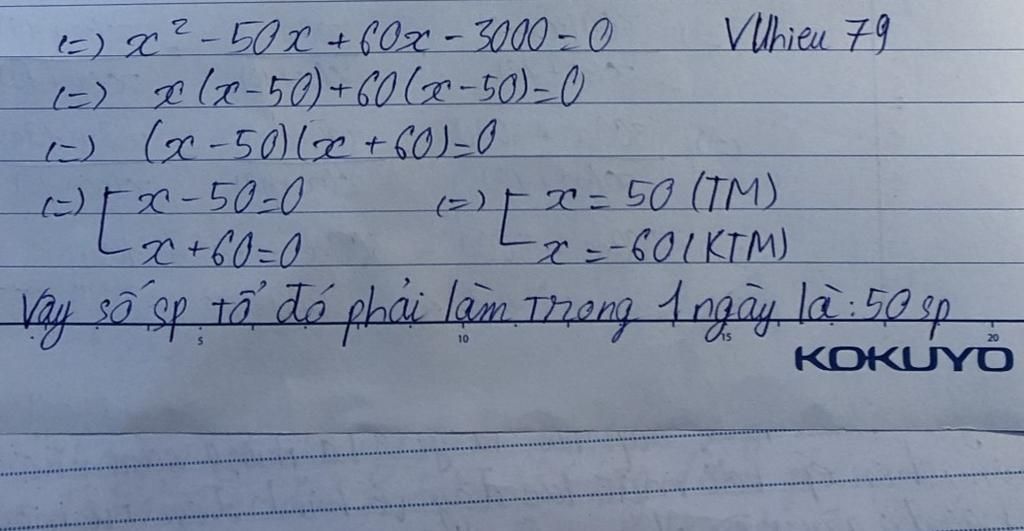 (=) x² - 50x + 60x - 3000 = 0 VUhieu 79
(=) x(x-50) + 60(x-50) = 0
(=) (x-50)(x+60) = 0
(=) [ x - 50 = 0 (=) [ x = 50 (TM)
x + 60 = 0 x = -60 (KTM)
Vậy số sp tổ đó phải làm trong 1 ngày là: 50 sp
5 10 15 20
KOKUYO